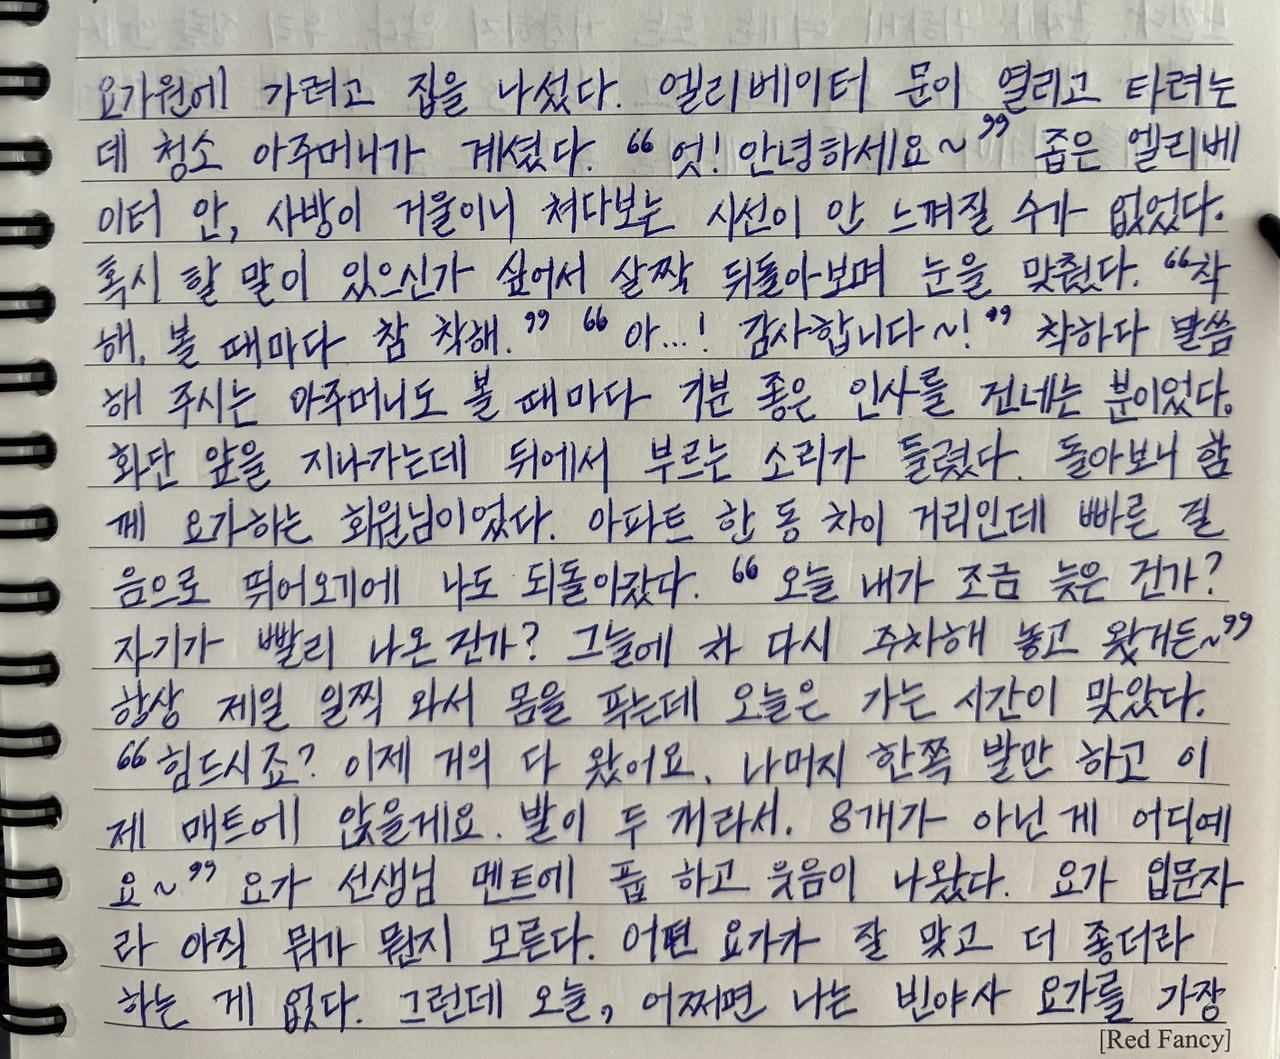 요가원에 가려고 집을 나섰다. 엘리베이터 문이 열리고 타려는
데 청소 아주머니가 계셨다. “엇! 안녕하세요~” 좁은 엘리베
이터 안, 사방이 거울이니 쳐다보는 시선이 안 느껴질 수가 없었다.
혹시 할 말이 있으신가 싶어서 살짝 뒤돌아보며 눈을 맞췄다. “착
해. 볼 때마다 참 착해.” “아...! 감사합니다~!” 착하다 말씀
해 주시는 아주머니도 볼 때마다 기분 좋은 인사를 건네는 분이었다.
화단 앞을 지나가는데 뒤에서 부르는 소리가 들렸다. 돌아보니 함
께 요가하는 회원님이었다. 아파트 한 동 차이 거리인데 빠른 걸
음으로 뛰어오기에 나도 되돌아갔다. “오늘 내가 조금 늦은 건가?
자기가 빨리 나온 건가? 그늘에 차 다시 주차해 놓고 왔거든~”
항상 제일 일찍 와서 몸을 푸는데 오늘은 가는 시간이 맞았다.
“힘드시죠? 이제 거의 다 왔어요. 나머지 한쪽 발만 하고 이
제 매트에 앉을게요. 발이 두 개라서. 8개가 아닌 게 어디예
요~” 요가 선생님 멘트에 풉 하고 웃음이 나왔다. 요가 입문자
라 아직 뭐가 뭔지 모른다. 어떤 요가가 잘 맞고 더 좋더라
하는 게 없다. 그런데 오늘, 어쩌면 나는 빈야사 요가를 가장
[Red Fancy]